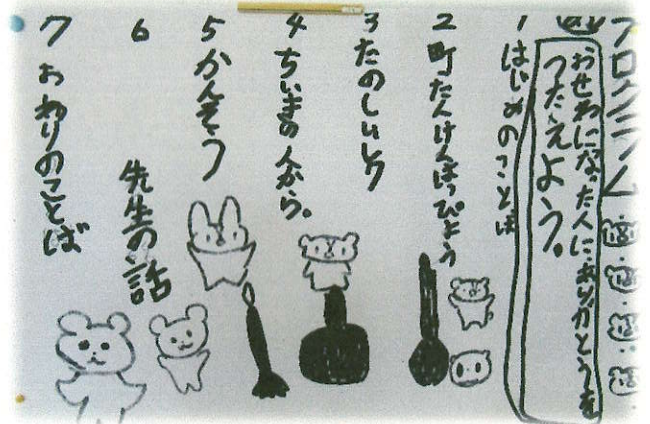 プログラム
おせわになった人にありがとうを
つたえよう。
1 はじめのことば
2 町たんけんはっぴょう
3 たのしい
4 ちいきの人から。
5 かんそう
6 先生の話
7 おわりのことば